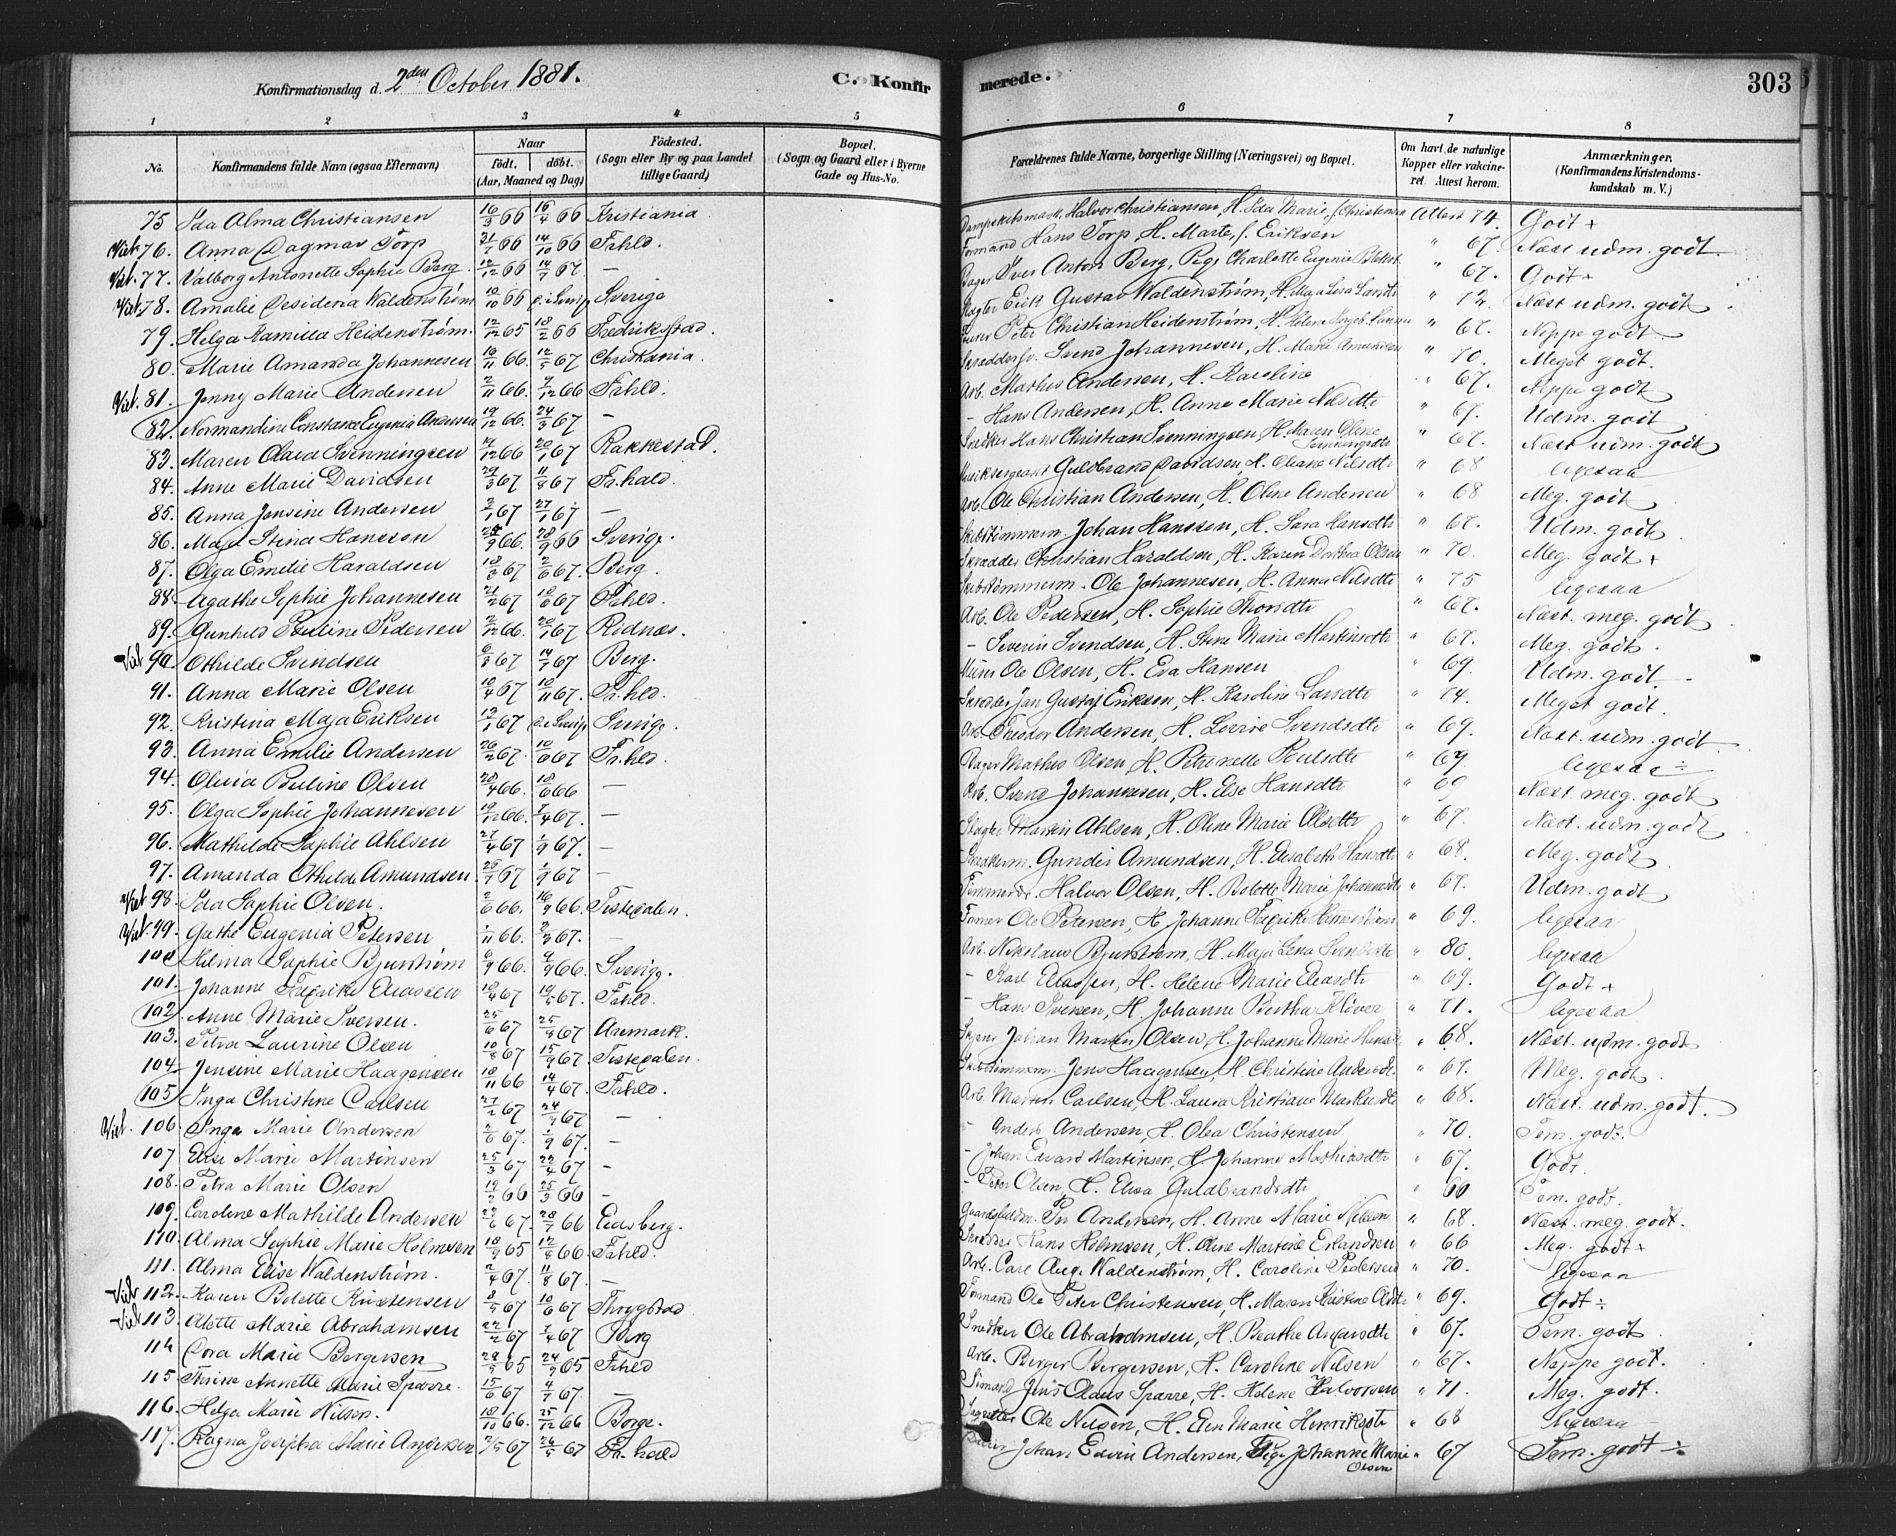 Konfirmationsdag d. 2den October 1881. C. Konfirmerede. 303
1 2 3 4 5 6 7 8
No. Konfirmandens fulde Navn (ogsaa Efternavn) Naar födt. döbt. (Aar, Maaned og Dag) Födested. (Sogn eller By og paa Landet tillige Gaard) Bopæl. (Sogn og Gaard eller i Byerne Gade og Hus-No. Forældrenes fulde Navne, borgerlige Stilling (Næringsvei) og Bopæl. Om havt de naturlige Kopper eller vakcineret. Attest herom. Anmærkninger. (Konfirmandens Kristendomskundskab m. V.)
75 Ida Alma Christiansen 16/3 66 16/4 66 Kristiania Halvor Christiansen, H. Ida Marie, f. Christensen Attest 74. Godt +
76. Anna Dagmar Torp 31/7 66 14/10 66 Fhld. Formand Hans Torp, H. Marte, f. Eriksen " 67. Næst udm. godt
77. Valborg Antonette Sophie Berg 12/12 66 14/7 67 — Bager Iver Anton Berg, Pige Charlotte Eugenie " 67. Godt +
78. Amalie Desideria Waldenstrøm 10/10 66 Sverige Slagter Erik Gustav Waldenstrøm, H. Maja Lisa " 72. Næst udm. godt
79. Helga Kamilla Heidenstrøm 12/12 65 18/2 66 Fredrikstad. Peter Christian Heidenstrøm, H. Helene Hansen " 67. Neppe godt
80. Marie Amanda Johannesen 16/11 66 12/5 67 Christiania. Svend Johannesen, H. Marie Amundsen " 70. Meget godt
81. Jenny Marie Andersen 2/11 66. 2/12 66 Fhld. Arb. Mathis Andersen, H. Karoline 67. Neppe godt
82. Normandine Constance Eugenia Andersen 19/12 66. 24/3 67 — — Hans Andersen, H. Anne Marie Nilsdtr " 67. Udm. godt
83. Maren Olava Svenningsen 14/12 66 20/1 67 Rakkestad. Snedker Hans Christian Svenningsen, H. Maren Oline Svenningsdtr " 67. Næst udm. godt
84. Anne Marie Davidsen 29/3 67 11/8 67 Fr.hald. Guldbrand Davidsen, H. Eliane Nilsdtr " 68 ligesaa
85. Anna Jensine Andersen 2/1 67 27/1 67 — Arb. Ole Christian Andersen, H. Oline Andersen " 68 Meg. godt
86. Maja Stina Hansson 9 66. 28/9 66 Sverige. Skibstømmerm. Johan Hanssen, H. Sara Hansdtr " 67. Udm. godt
87. Olga Emilie Haraldsen 18/3 67 2/6 67. Berg. Skrædder Christian Haraldsen, H. Karen Dorthea Olsen " 70. Meg. godt +
88. Agathe Sophie Johannesen 21/2 67 10/6 67 Fhld. Skibstømmerm. Ole Johannesen, H. Anna Nilsdtr " 75 ligesaa
89. Gunhild Pauline Pedersen 2/12 66. 20/1 67 Ridnæs. Arb. Ole Pedersen, H. Sophie Thorsdtr " 67. Næst. meg. godt
90. Othilde Svendsen 6/3 67 14/7 67 Berg. — Severin Svendsen, H. Stine Marie Martinsdtr " 67. Meg. godt.
91. Anna Marie Olsen 10/4 67 10/11 67. Fr.hld. Ole Olsen, H. Eva Hansen " 69. Udm. godt
92. Kristina Maja Eriksen 12/1 67 Sverige. Skrædder Jan Gustaf Eriksen, H. Karoline Larsdtr " 74. Meget godt.
93. Anna Emilie Andersen 26/2 67 10/6 67 Fr.hld. Arb. Theodor Andersen, H. Lovise Svendsdtr " 69. Næst. udm. godt
94. Olivia Pauline Olsen 28/4 66. 18/6 66 — Bager Mathis Olsen, H. Petronelle Poulsdtr " 69 ligesaa ÷
95. Olga Sophie Johannesen 19/12 66. 7/4 67. — Arb. Svend Johannesen, H. Else Hansdtr " 69 Næst. meg. godt
96. Mathilde Sophie Ahlsen 27/4 67 1/9 67. — Slagter Martin Ahlsen, H. Oline Marie Olsdtr " 67. Næst. udm. godt
97. Amanda Othilde Amundsen 25/7 67 1/9 67 — Snedkerm. Gunder Amundsen, H. Elisabeth Hansdtr " 68. Meg. godt.
98. Ida Sophie Olsen. 2/6 66. 16/9 66. Tistedalen. Halvor Olsen, H. Bolette Marie Johannesdtr " 67. Udm. godt
99. Gathe Eugenia Petersen 1/11 66. 3/3 67. — Ole Petersen, H. Johanne Fredrike " 69. ligesaa
100 Hilma Sophie Bjurstrøm 6/9 66. 9/9 66. Sverige. Arb. Nikolaus Bjurstrøm, H. Maja Lena Svendsdtr " 80. ligesaa
101. Johanne Fredrike Eliassen 10/4 67 19/5 67. Fhld. — Karl Eliassen, H. Helene Marie Eliasdtr " 69. Godt +
102. Anne Marie Iversen. 25/6 67 25/8 67 Aremark. — Hans Iversen, H. Johanne Bertha Kløver " 71. ligesaa
103. Petra Laurine Olsen 10/8 67 15/9 67. Tistedalen. Johan Martin Olsen, H. Johanne Marie " 68. Næst. udm. godt
104. Jensine Marie Haagensen 18/11 66 14/4 67. Fhld. Skibstømmerm. Jens Haagensen, H. Christine Andersdtr " 67. Meg. godt.
105 Inga Christine Carlsen 27/2 67 24/7 67 — Arb. Martin Carlsen, H. Laura Kristiane Markusdtr " 68. Næst. udm. godt.
106. Inga Marie Andersen 2/6 67. 1/9 67. — — Anders Andersen, H. Olea Christensen " 70. Tem. godt.
107 Else Marie Martinsen 25/3 67 22/4 67 — — Johan Edvard Martinsen, H. Johanne Mathisdtr " 67. Godt.
108. Petra Marie Olsen 19/2 66 25/3 66 — — Peter Olsen, H. Elisa Guldbrandsdtr " 66 Tem. godt.
109. Caroline Mathilde Andersen 6 67. 28/7 66 Eidsberg. Gaardsbdm. Pr Andersen, H. Anne Marie Nilsen " 68. Næst. meg. godt.
110. Alma Sophie Marie Holmsen 18/9 65 12/8 66. Fhld. Skrædder Hans Holmsen, H. Oline Martine Erlandsen " 66 Meg. godt +
111. Alma Elise Waldenstrøm. 2/4 67. 11/8 67. — Arb. Carl Aug. Waldenstrøm, H. Caroline Pedersen " 70. ligesaa
112. Karen Bolette Kristensen 8/5 67 10/6 67 Thrygstad Formand Ole Peter Christensen, H. Maren Kristine " 69. Godt ÷
113. Alette Marie Abrahamsen 22/2 67 7/4 67 Berg Snedker Ole Abrahamsen, H. Beathe Andersdtr " 67. Tem. godt
114 Cora Marie Bergersen 29/5 65 24/9 65 Fhld Arb. Berger Bergersen, H. Caroline Nilsen " 67. Neppe godt.
115. Annette Marie Sparre. 15/6 67 4/7 67. — Formand Jens Olaus Sparre, H. Helene Halvorsen " 71. Meg. godt.
116. Helga Marie Nilsen. 18/10 66. 25/12 66 Borge. Ole Nilsen, H. Elen Marie Henriksdtr " 68 ligesaa
117. Ragna Josepha Marie Andersen 2/5 67 26/5 67 Fr.hald Johan Edvin Andersen, Pige Johanne Marie Olsen " 67 Tem. godt ÷